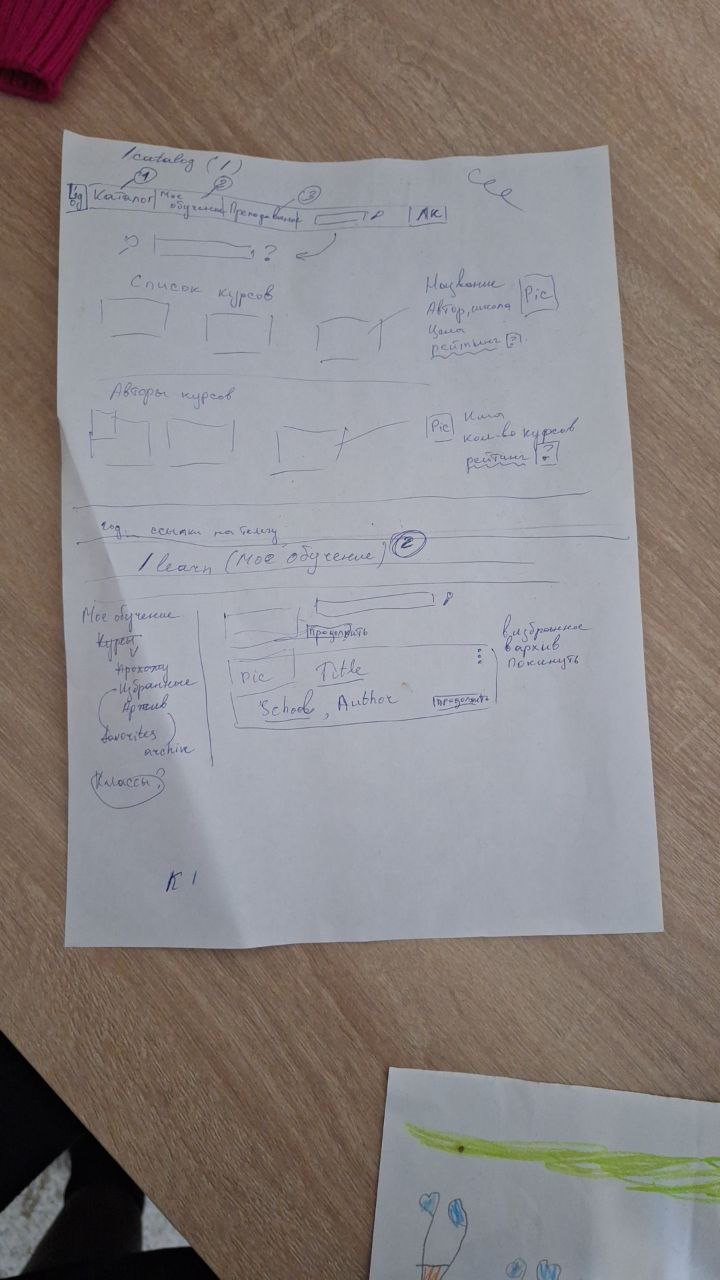 /catalog (1)
1
2
3
Logo
Каталог
Мое обучение
Преподавание
ЛК
?
Список курсов
Название
Автор, школа
Цена
рейтинг ?
Pic
Авторы курсов
Pic
Имя
кол-во курсов
рейтинг ?
год... ссылки на телегу
/learn (Мое обучение) 2
Мое обучение
Курсы
Прохожу
Избранные
Архив
favorites
archive
Классы?
Продолжить
Pic
Title
School, Author
Продолжить
в избранное
в архив
Покинуть
К 1